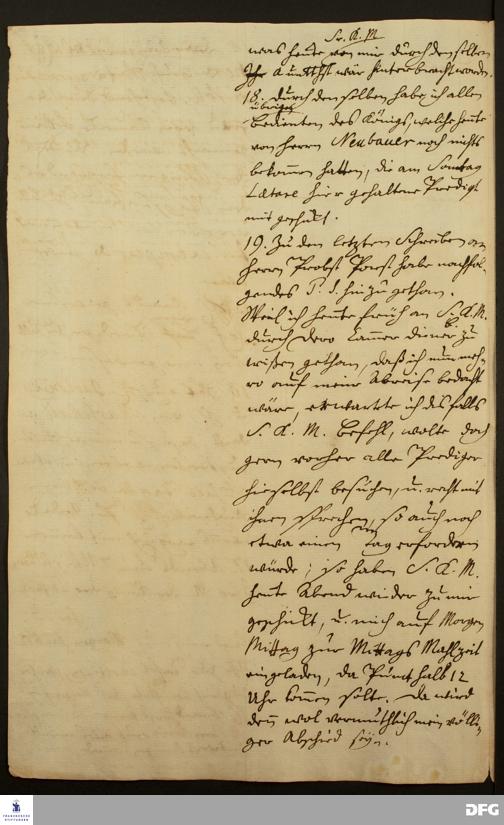 Sr. K. M
was heute von mir durch denselben
Ihr K. M. wär hinterbracht worden.
18. Durch denselben habe ich allen
übrigen
Bedienten des Königs, welche heute
von Herrn Neubauer noch nichts
bekommen hatten, die am Sontag
Lætare hier gehaltene Predigt
mit geschickt.
19. Zu dem letzten Schreiben an
Herrn Probst Porst habe nachfol-
gendes P. S. hinzu gethan.
Weil ich heute früh an S. K. M.
durch Dero Cammerdiener zu
wißen gethan, daß ich nunmeh-
ro auf meine Abreise bedacht
wäre, erwartete ich desfalls
S. K. M. Befehl, wolte doch
gern vorher alle Prediger
hieselbst besuchen, u. recht mit
ihnen sprechen, so auch noch
etwa einen Tag erfordern
würde; so haben S. K. M.
heute Abend wieder zu mir
geschickt, u. mich auf Morgen
Mittag zur Mittags Mahlzeit
eingeladen, da Punct halb 12
Uhr kommen solte. Da wird
denn wol vermuthlich mein völli-
ger Abschied seyn.
FRANCKESCHE
STIFTUNGEN
DFG